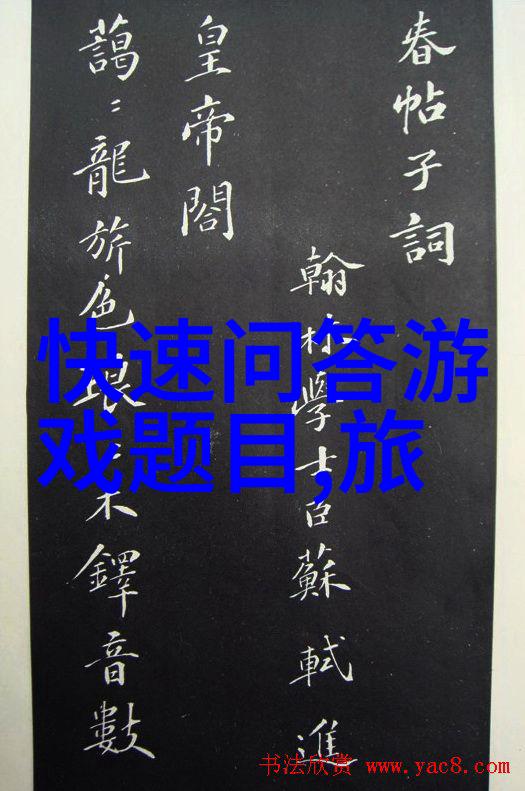 春帖子詞
翰林學士臣蘇軾進
皇帝閣
藹〻龍旂色琅〻木鐸音數
快速问答游
戏题目,旅
书法欣赏 www.yac8.com